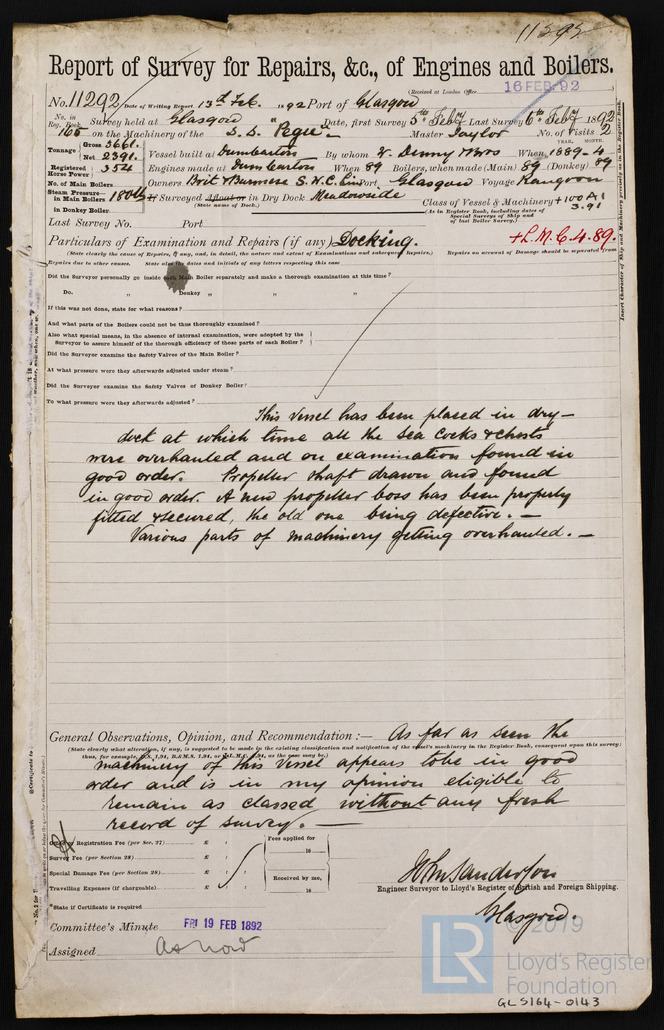 11292
Report of Survey for Repairs, &c., of Engines and Boilers.
(Received at London Office
16 FEB. 92
No. 11292 Date of Writing Report 13th Feb. 1892 Port of Glasgow
No. in Reg. Book. 165 Survey held at Glasgow Date, first Survey 5th Feby Last Survey 6th Feby 1892
on the Machinery of the S.S. "Pegu" Master Taylor No. of Visits 2
YEAR. MONTH.
Tonnage Gross 3661. Net 2391. Vessel built at Dumbarton By whom W. Denny & Bros When 1889-4
Registered Horse Power 354 Engines made at Dumbarton When 89 Boilers, when made (Main) 89 (Donkey) 89
No. of Main Boilers Owners Brit & Burmese S. N. C. Lim Port Glasgow Voyage Rangoon
Steam Pressure— in Main Boilers 180 lbs If Surveyed Afloat or in Dry Dock Meadowside
(State name of Dock.)
Class of Vessel & Machinery +100A1 3.91
(As in Register Book, including dates of Special Surveys of Ship and of last Boiler Survey.)
in Donkey Boiler
Last Survey No. Port
+L.M.C. 4.89.
Particulars of Examination and Repairs (if any) Docking.
(State clearly the cause of Repairs, if any, and, in detail, the nature and extent of Examinations and subsequent Repairs.) Repairs on account of Damage should be separated from
Repairs due to other causes. State also the dates and initials of any letters respecting this case
Did the Surveyor personally go inside each Main Boiler separately and make a thorough examination at this time?
Do. „ Donkey „ „ „
If this was not done, state for what reasons?
And what parts of the Boilers could not be thus thoroughly examined?
Also what special means, in the absence of internal examination, were adopted by the Surveyor to assure himself of the thorough efficiency of those parts of each Boiler?
Did the Surveyor examine the Safety Valves of the Main Boiler?
At what pressure were they afterwards adjusted under steam?
Did the Surveyor examine the Safety Valves of Donkey Boiler?
To what pressure were they afterwards adjusted?
This vessel has been placed in dry-
dock at which time all the sea cocks & chests
were overhauled and on examination found in
good order. Propeller shaft drawn and found
in good order. A new propeller boss has been properly
fitted & secured, the old one being defective. —
Various parts of machinery getting overhauled. —
General Observations, Opinion, and Recommendation :— As far as seen the
(State clearly what alteration, if any, is suggested to be made in the existing classification and notification of the vessel's machinery in the Register Book, consequent upon this survey;
machinery of this vessel appears to be in good
order and is in my opinion eligible to
remain as classed without any fresh
record of survey. —
Registration Fee (per Sec. 27) £ : :
Survey Fee (per Section 28) £ : :
Special Damage Fee (per Section 28) £ : :
Travelling Expenses (if chargeable) £ : :
Fees applied for
18
Received by me,
18
*State if Certificate is required
John Sanderson
Engineer Surveyor to Lloyd's Register of British and Foreign Shipping.
Glasgow.
Committee's Minute FRI 19 FEB 1892
Assigned As now
Insert Character of Ship and Machinery precisely as in the Register Book.
© 2019
LR
Lloyd's Register
Foundation
GLS164-0143